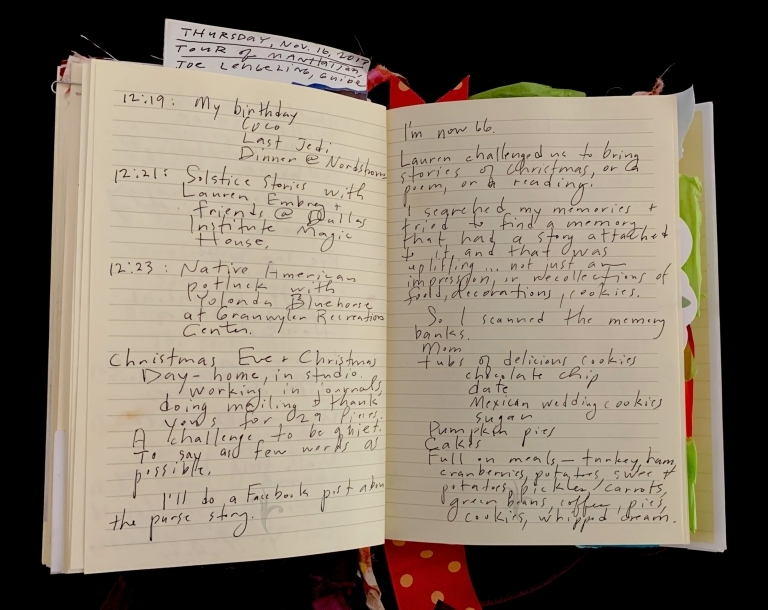 THURSDAY, NOV. 16, 2017
TOUR OF MANHATTAN,
JOE LENGELING, GUIDE
12:19: My birthday
Coco
Last Jedi
Dinner @ Nordstrom
12:21: Solstice Stories with
Lauren Embrey +
friends @ Dallas
Institute Magic
House.
12:23: Native American
potluck with
Yolonda Bluehorse
at Grauwyler Recreation
Center.
Christmas Eve + Christmas
Day - home, in studio.
working in journals,
doing mailing + thank
yous for 29 Pines.
A challenge to be quiet.
To say as few words as
possible.
I'll do a Facebook post about
the purse story.
I'm now 66.
Lauren challenged us to bring
stories of Christmas, or a
poem, or a reading.
I searched my memories +
tried to find a memory
that had a story attached
to it and that was
uplifting ... not just an
impression, or recollections of
food, decorations, cookies.
So I scanned the memory
banks.
Mom
tubs of delicious cookies
chocolate chip
date
Mexican wedding cookies
sugar
Pumpkin pies
Cakes
Full on meals - turkey, ham,
cranberries, potatoes, sweet
potatoes, pickles, carrots,
green beans, coffee, pies,
cookies, whipped cream.